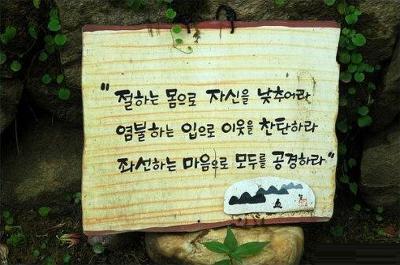 "절하는 몸으로 자신을 낮추어라
염불하는 입으로 이웃을 찬탄하라
좌선하는 마음으로 모두를 공경하라"